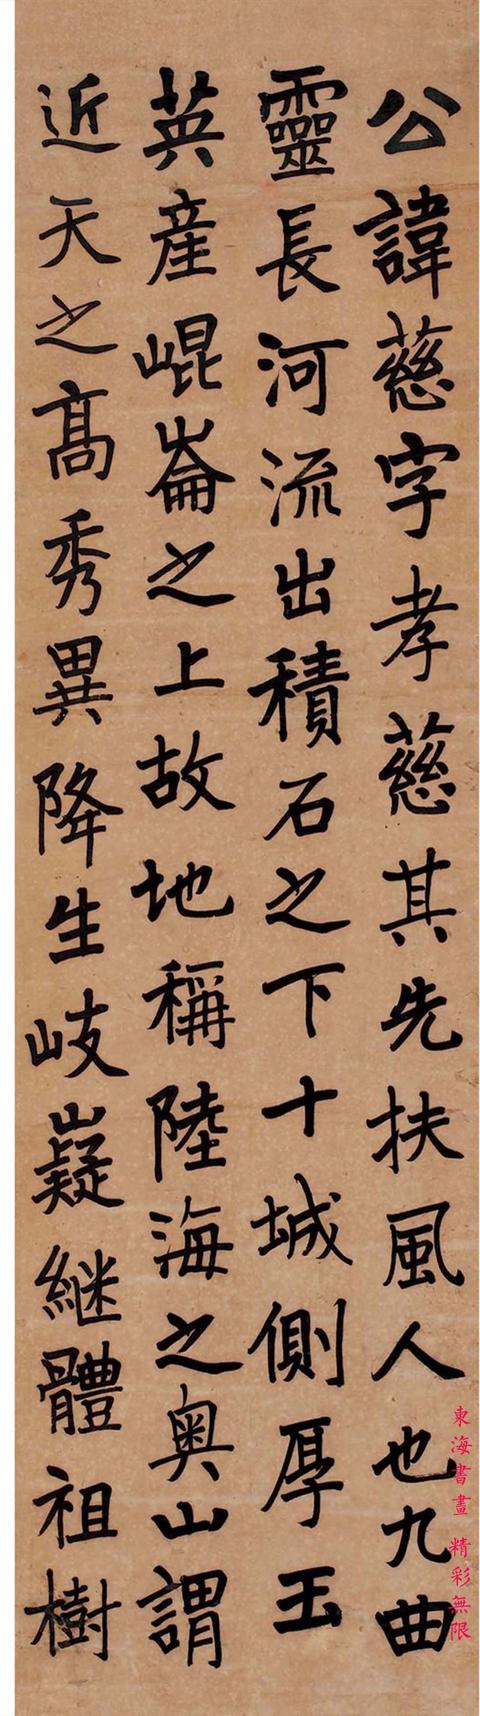 公諱慈字孝慈其先扶風人也九曲
靈長河流出積石之下十城側厚玉
英產崐崙之上故地稱陸海之奧山謂
近天之髙秀異降生岐嶷継體祖樹
東海書畫 精彩無限